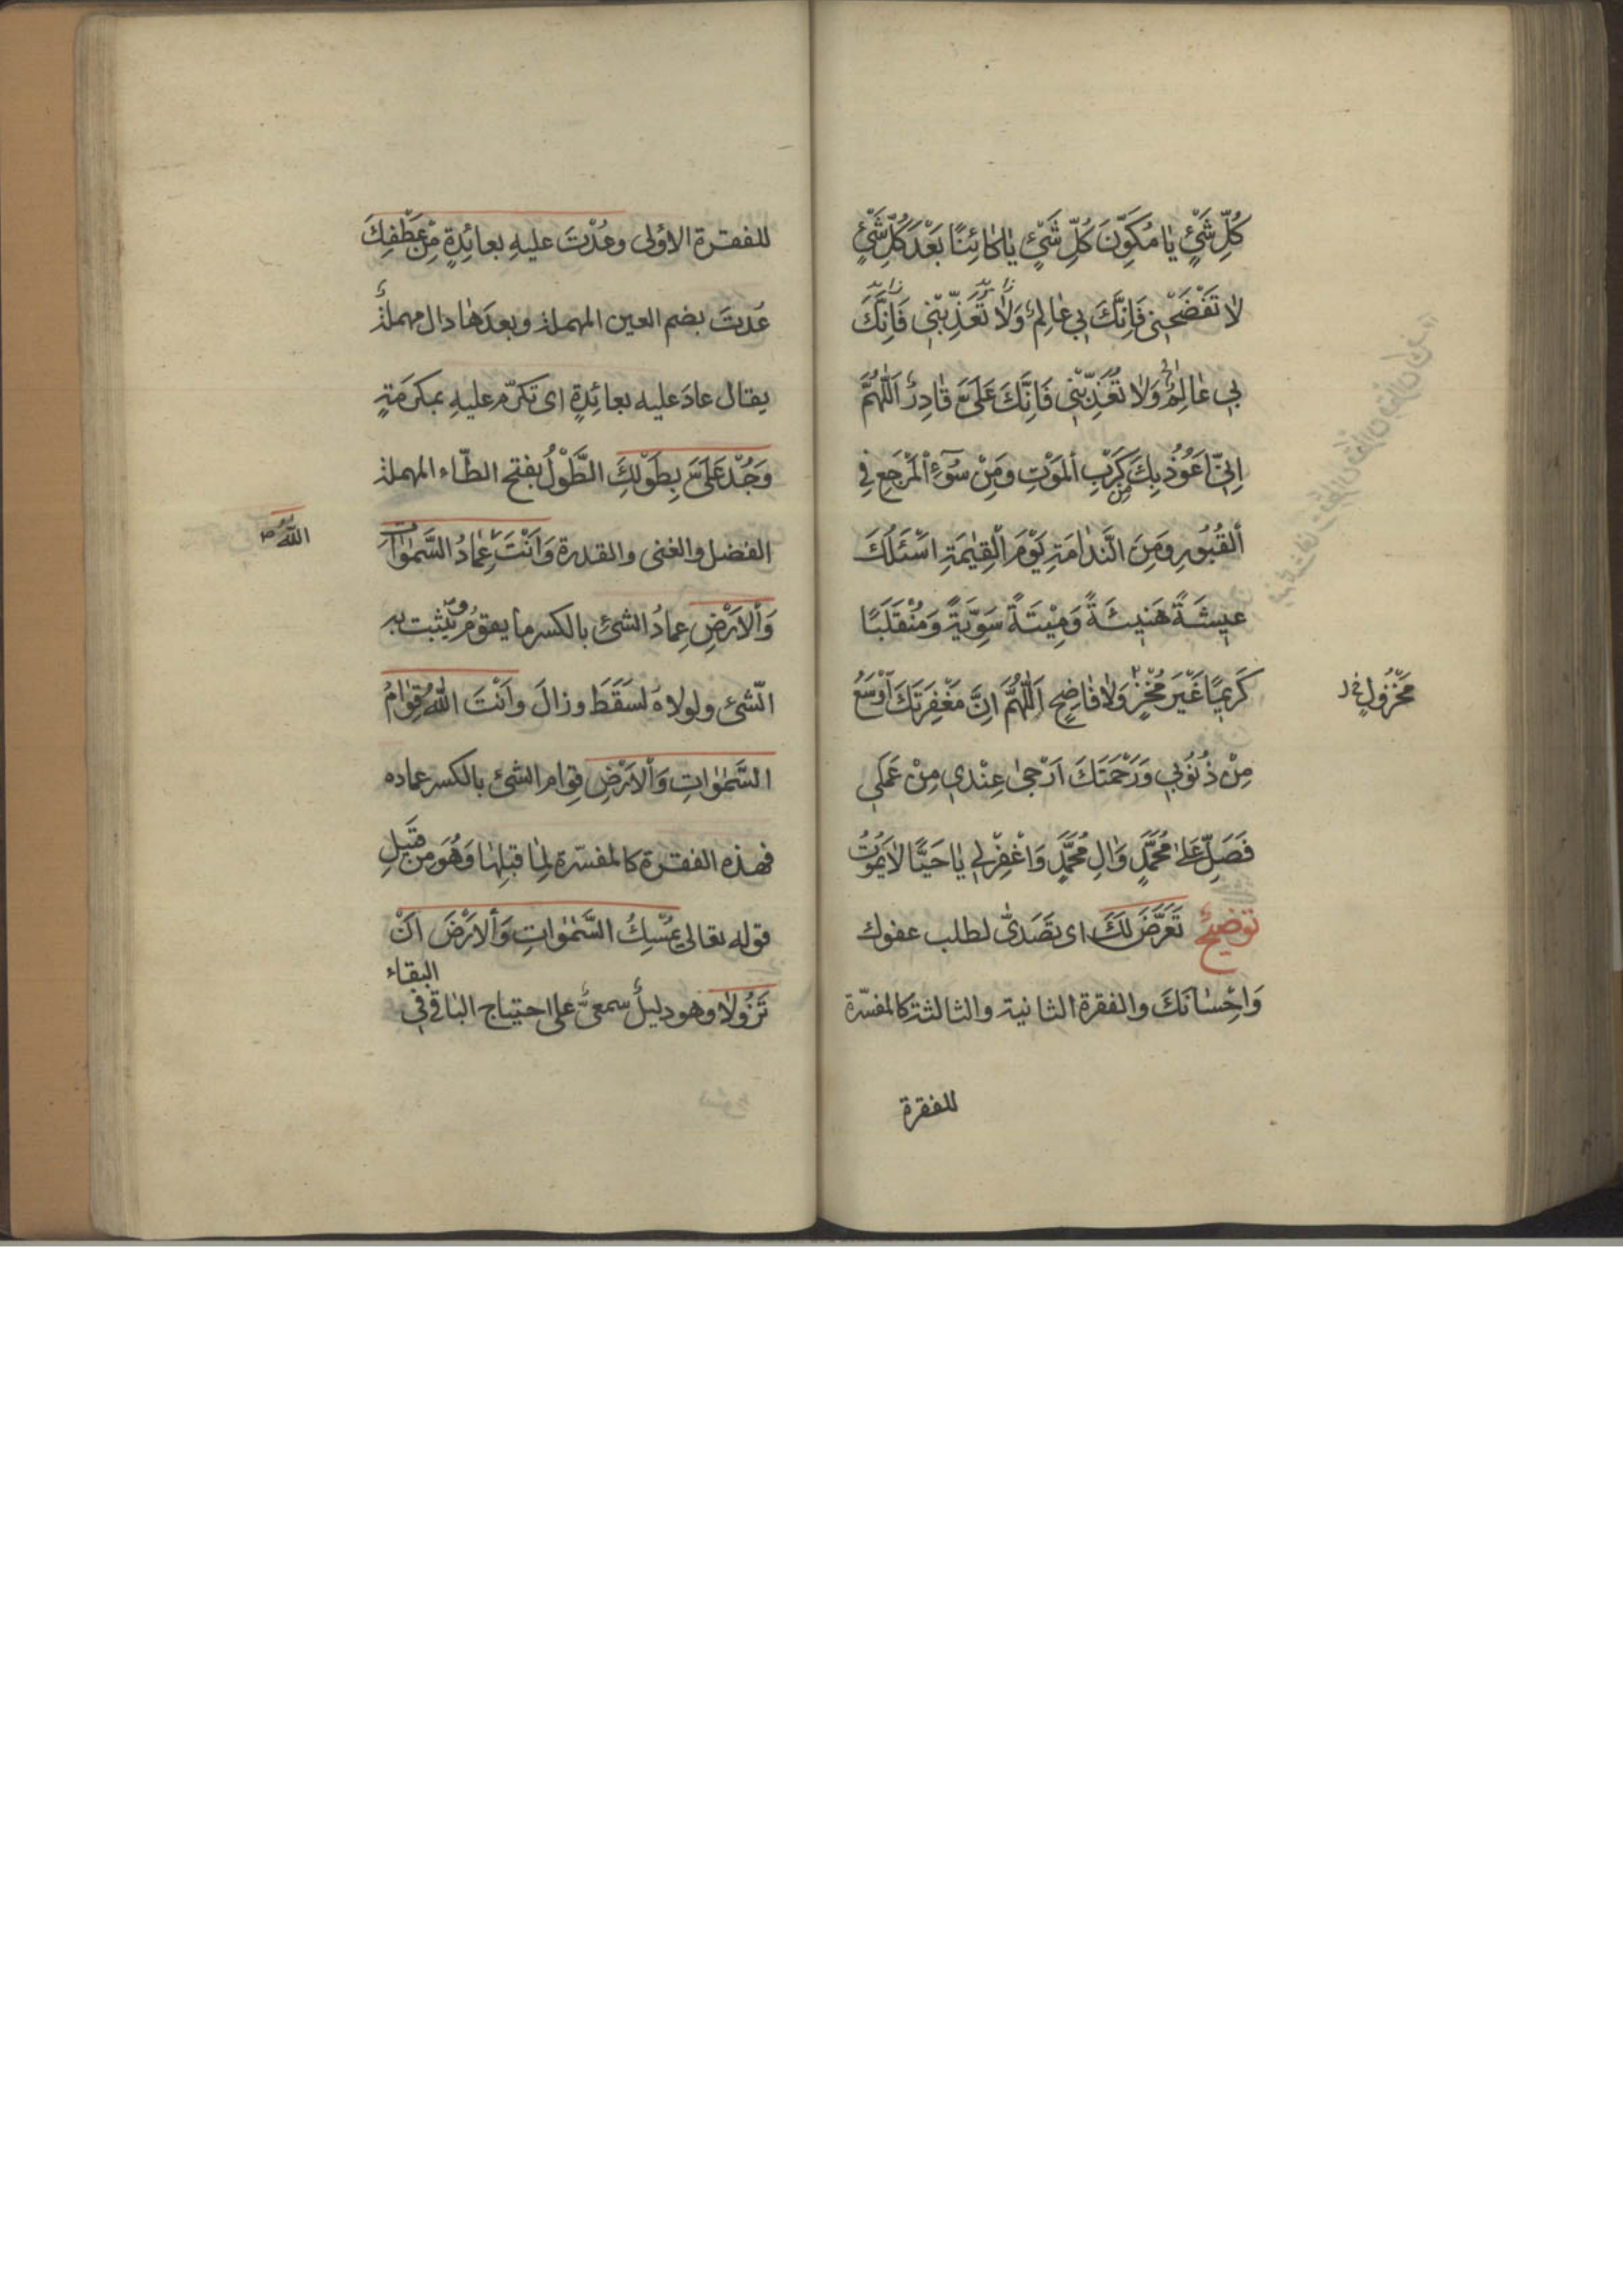 كُلِّ شَيْءٍ يٰا مُكَوِّنَ كُلِّ شَيْءٍ يٰا كٰائِنًا بَعْدَ كُلِّ شَيْءٍ
لاٰ تَفْضَحْنِي فَاِنَّكَ بِي عٰالِمٌ وَلاٰ تُعَذِّبْنِي فَاِنَّكَ
بِي عٰالِمٌ وَلاٰ تُعَذِّبْنِي فَاِنَّكَ عَلَيَّ قٰادِرٌ اَللّٰهُمَّ
اِنِّي اَعُوذُ بِكَ مِنْ كَرْبِ الْمَوْتِ وَمِنْ سُوٓءِ الْمَرْجَعِ فِي
الْقُبُورِ وَمِنَ النَّدٰامَةِ يَوْمَ الْقِيٰمَةِ اَسْئَلُكَ
عيشَةً هَنيئَةً وَميتَةً سَوِيَّةً وَمُنْقَلَبًا
كَريمًا غَيْرَ مُخْزٍ وَلاٰ فٰاضِحٍ اَللّٰهُمَّ اِنَّ مَغْفِرَتَكَ اَوْسَعُ
مَخْزُولٍ خ ل
مِنْ ذُنُوبِي وَرَحْمَتَكَ اَرْجىٰ عِنْدِي مِنْ عَمَلِي
فَصَلِّ عَلىٰ مُحَمَّدٍ وَاٰلِ مُحَمَّدٍ وَاغْفِرْ لِي يٰا حَيًّا لاٰ يَمُوتُ
توضيحٌ تَعَرَّضَ لَكَ اى تَصَدّىٰ لطلب عفوك
وَاِحْسٰانَكَ والفقرة الثانية والثالثة كالمفسّرة
للفقرة
للفقرة الاولى وعُدْتَ عليهِ بعائِدةٍ مِنْ عَطْفِكَ
عُدتَ بضم العين المهملة وبعدَهٰا دال مهملةٌ
يقال عادَ عليه بعائِدةٍ اى تكرّم عليهِ بمكرَمَةٍ
وَجُدْ عَلَيَّ بِطَوْلِكَ الطَّوْلُ بفتح الطّاء المهملة
الفضل والغنى والقدرة وَاَنْتَ عِمٰادُ السَّمٰوٰاتِ
اللّٰهُ صح
وَالْاَرْضِ عِمادُ الشئِ بالكسر ما يقومُ ويثبت به
الشئ ولولاهُ لسَقَطَ وزالَ وانْتَ اللّٰهُ قِوٰامُ
السَّمٰوٰاتِ وَالْاَرْضِ قِوام الشئ بالكسر عماده
فهذه الفقرة كالمفسّرة لِمٰا قبلِهٰا وَهُوَ من قَبيلِ
قوله تعالى يُمْسِكُ السَّمٰوٰاتِ وَالْاَرْضَ اَنْ
تَزُولاٰ وهو دليلٌ سمعيٌّ على احتياج الباقى في
البقاء